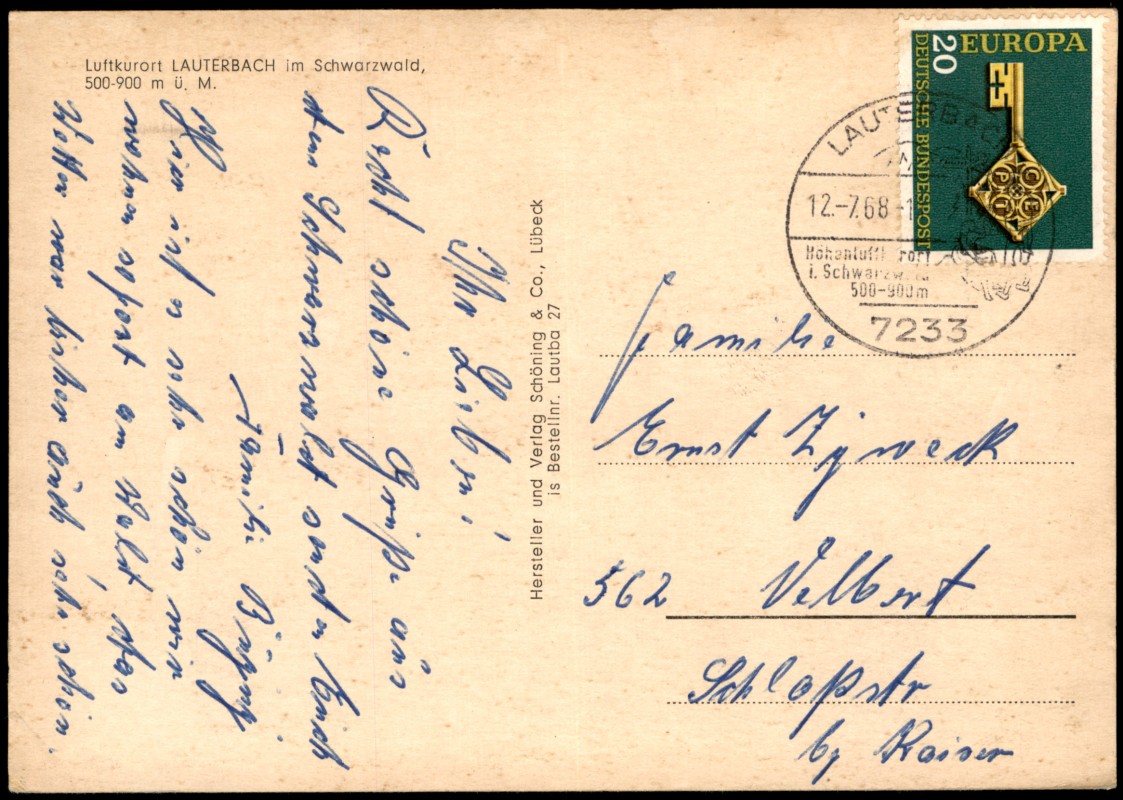 Luftkurort LAUTERBACH im Schwarzwald,
500-900 m ü. M.
Ihr Lieben!
Recht schöne Grüße aus
dem Schwarzwald sendet Euch
Familie
Hier ist es sehr schön wir
wohnen sofort am Wald, das
Wetter war bisher auch sehr schön.
Hersteller und Verlag Schöning & Co., Lübeck
is Bestellnr. Lautba 27
EUROPA
20
DEUTSCHE BUNDESPOST
CEPT
LAUTERBACH
12.-7.68-1
Höhenluftkurort
i. Schwarzwald
500-900m
7233
Familie
Ernst Zyweck
562 Velbert
Schloßstr
by Kaiser